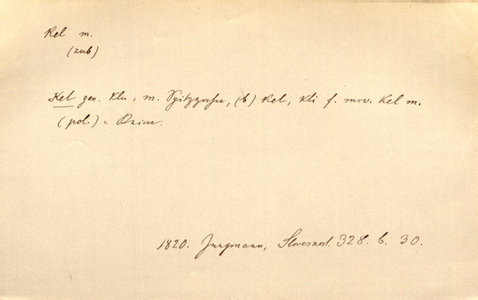 Kel m.
(zub)
Kel gen. klu, m. Spitzzahn, (b) kel, kli f. mrv. kel m.
(pol.) =
1820. Jungmann, Slovesnost. 328. b. 30.